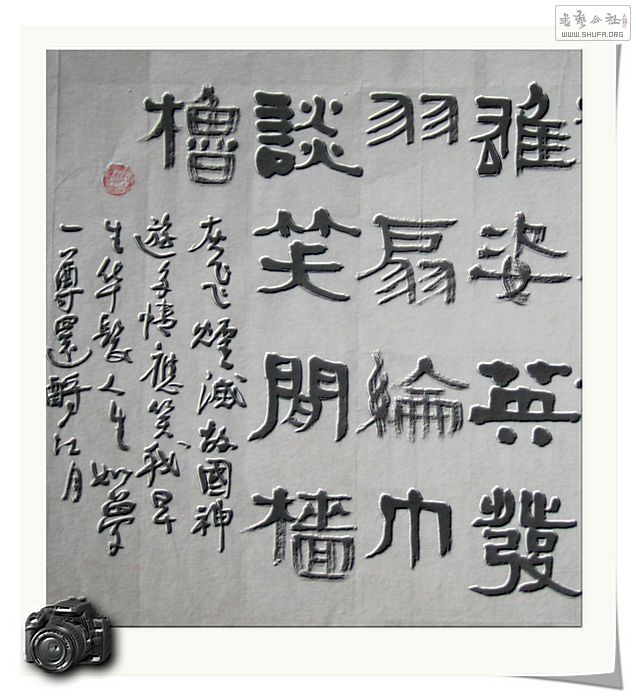 書藝公社
WWW.SHUFA.ORG
雄姿英發
羽扇綸巾
談笑間檣
櫓
灰飞飞煙滅故國神
遊多情應笑我早
生华髮人生如夢
一尊還酹江月